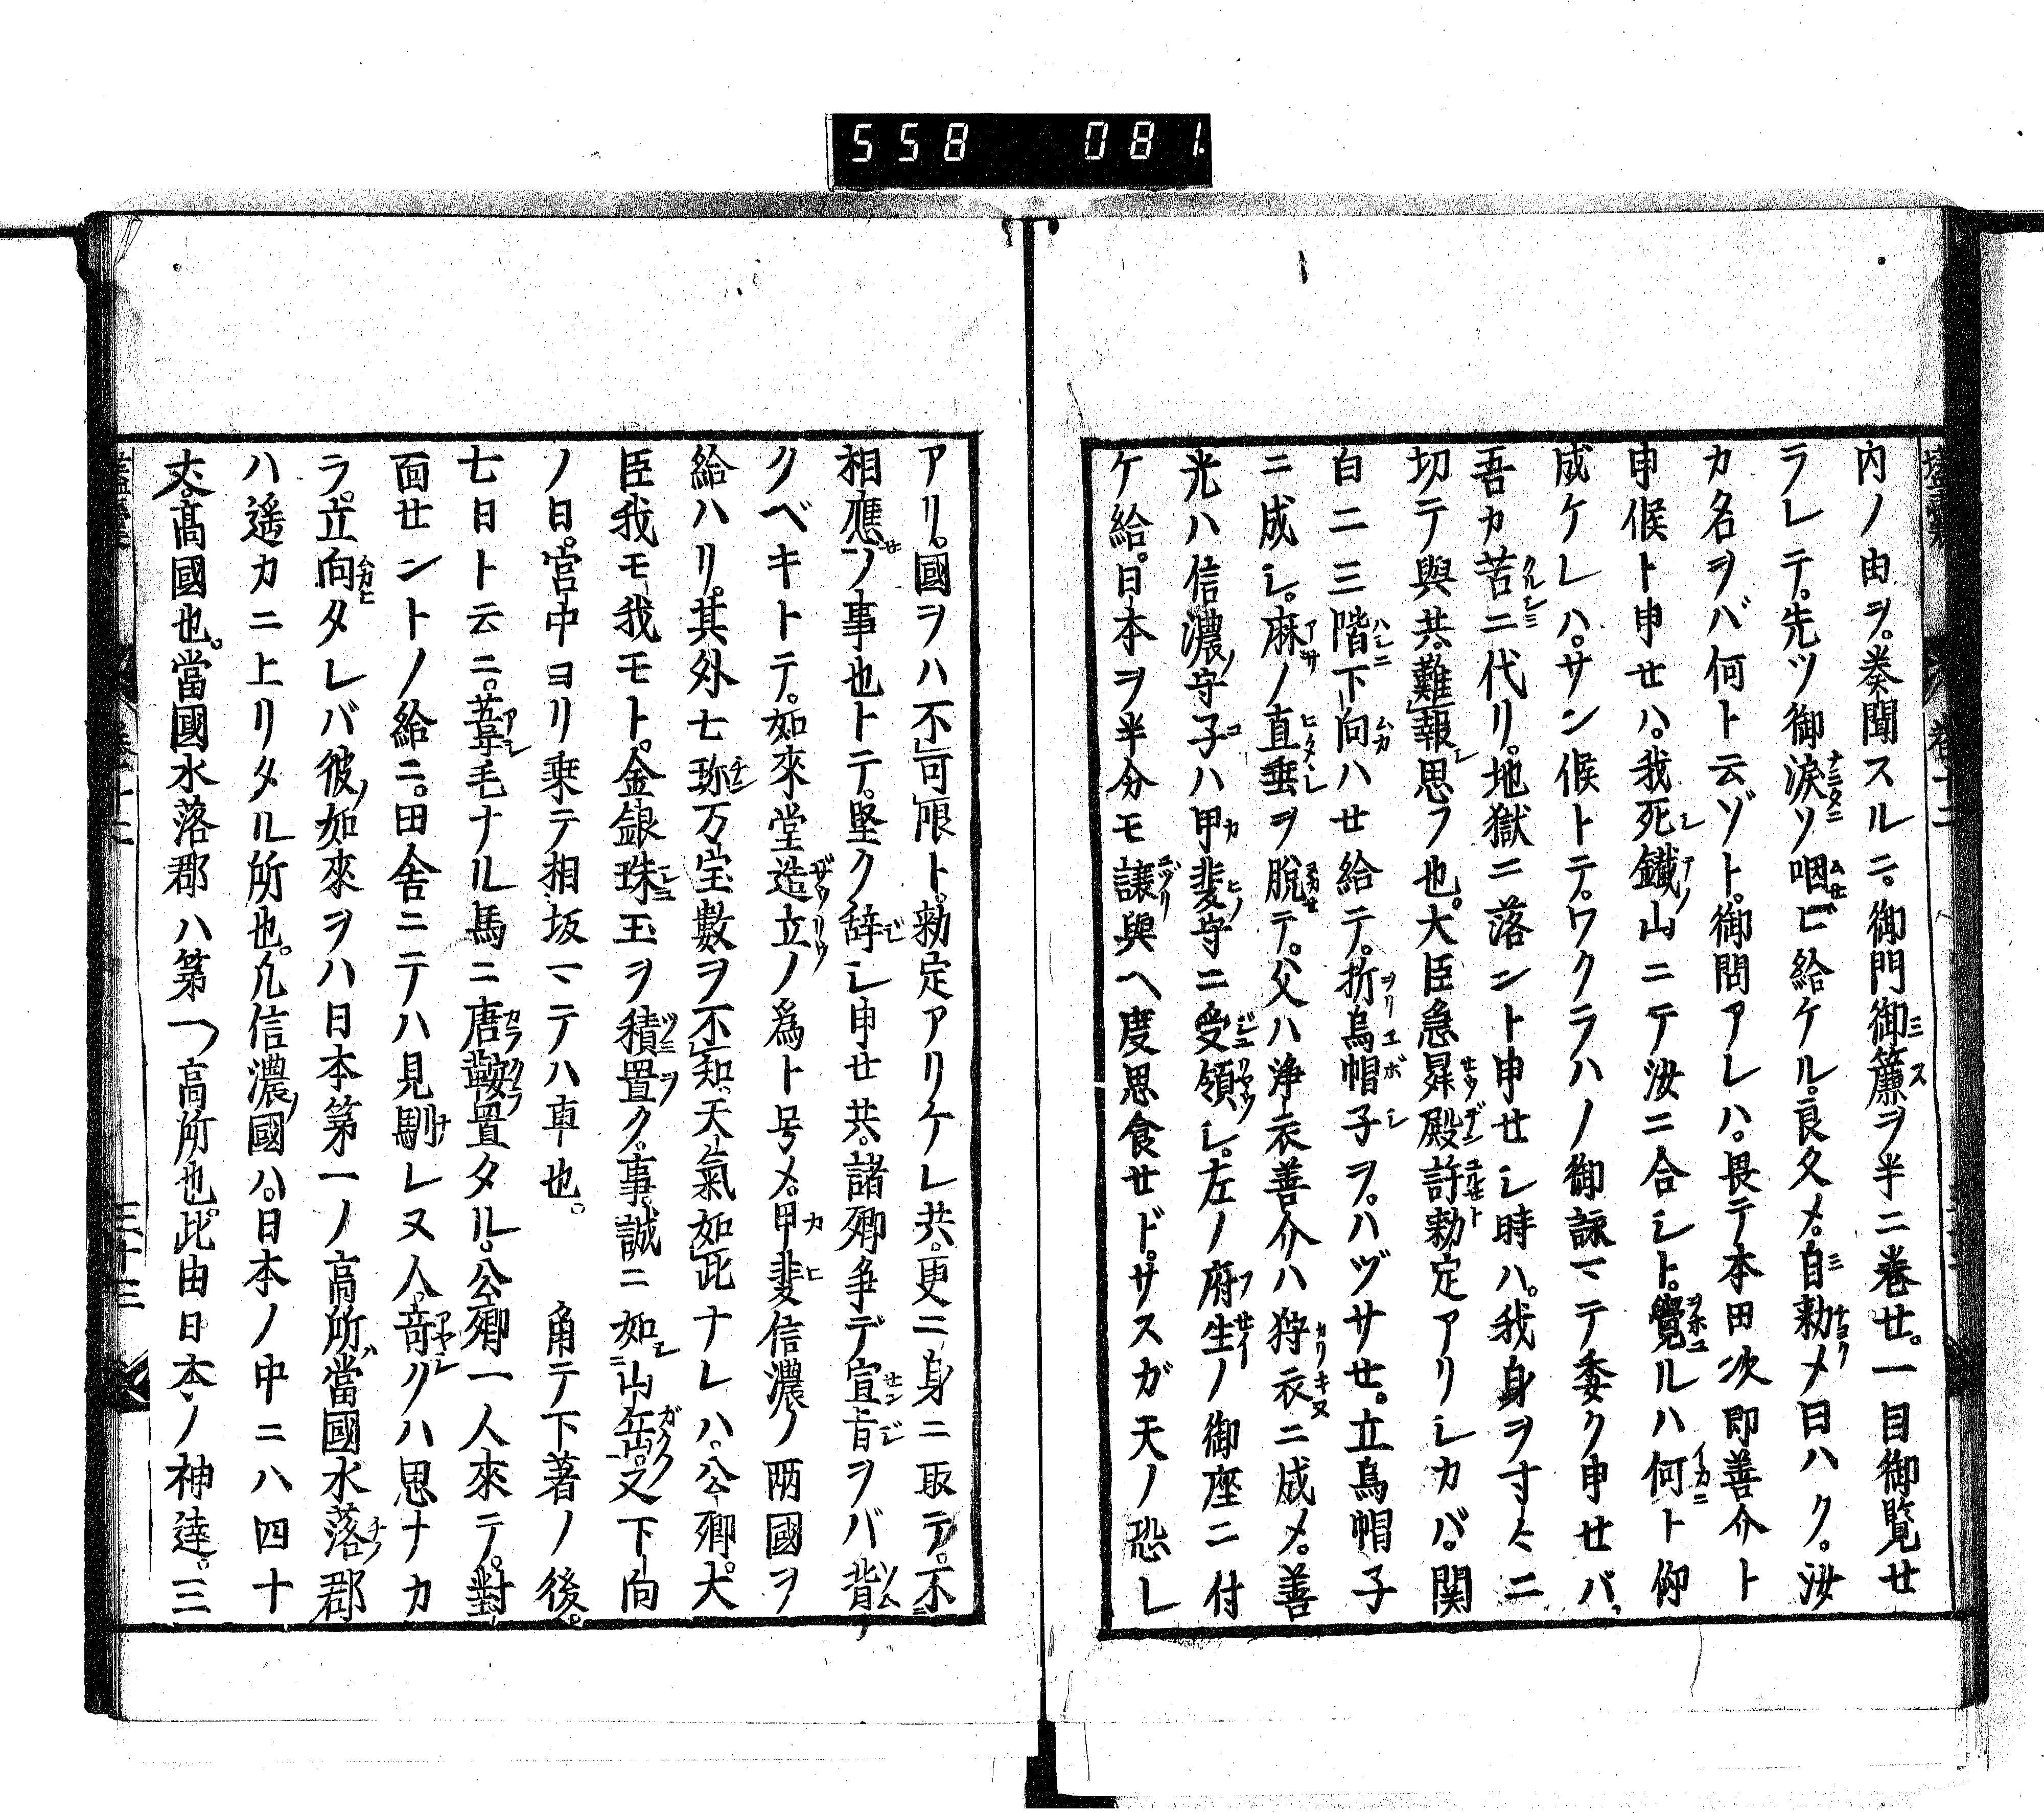 558 081
内ノ由ヲ。奏聞スルニ。御門御簾ヲ半ニ巻セ。一目御覧セ
ラレテ。先ツ御涙ソ咽ビ給ケル。良久メ。自勅メ曰ハク。汝
カ名ヲバ何ト云ゾト。御問アレハ。畏テ本田次即善介ト
申候ト申セハ。我死鐵山ニテ汝ニ合シト。覺ルハ何ト仰
成ケレハ。サン候トテ。ワクラハノ御詠マテ委ク申セバ。
吾カ苦ニ代リ。地獄ニ落ント申セシ時ハ。我身ヲ寸々ニ
切テ與共。難報思フ也。大臣急昇殿許勅定アリシカバ。関
白二三階下向ハセ給テ。折烏帽子ヲ。ハヅサセ。立烏帽子
ニ成シ。麻ノ直垂ヲ脱テ。父ハ浄衣善介ハ狩衣ニ成メ。善
光ハ信濃守子ハ甲斐守ニ受領シ。左ノ府生ノ御座ニ付
ケ給。日本ヲ半分モ譲與ヘ度思食セド。サスガ天ノ恐レ
アリ。國ヲハ不可限ト。勅定アリケレ共。更ニ身ニ取テ。不
相應ノ事也トテ。堅ク辞シ申セ共。諸卿争デ宣旨ヲバ背
クベキトテ。如來堂造立ノ為ト号メ。甲斐信濃ノ両國ヲ
給ハリ。其外七珎万宝數ヲ不知。天氣如此ナレハ。公卿。大
臣我モ我モト。金銀珠玉ヲ積置ク。事誠ニ如山岳。又下向
ノ日。宮中ヨリ乗テ相坂マテハ車也。 角テ下著ノ後。
七日ト云ニ。葦毛ナル馬ニ唐鞍置タル。公卿一人來テ。對
面センントノ給ニ。田舎ニテハ見馴レヌ人。竒クハ思ナカ
ラ。立向タレバ彼如來ヲハ日本第一ノ高所當國水落郡
ハ遥カニ上リタル所也。凡信濃國ハ。日本ノ中ニハ四十
丈。高國也。當國水落郡ハ第一高所也。此由日本ノ神達。三